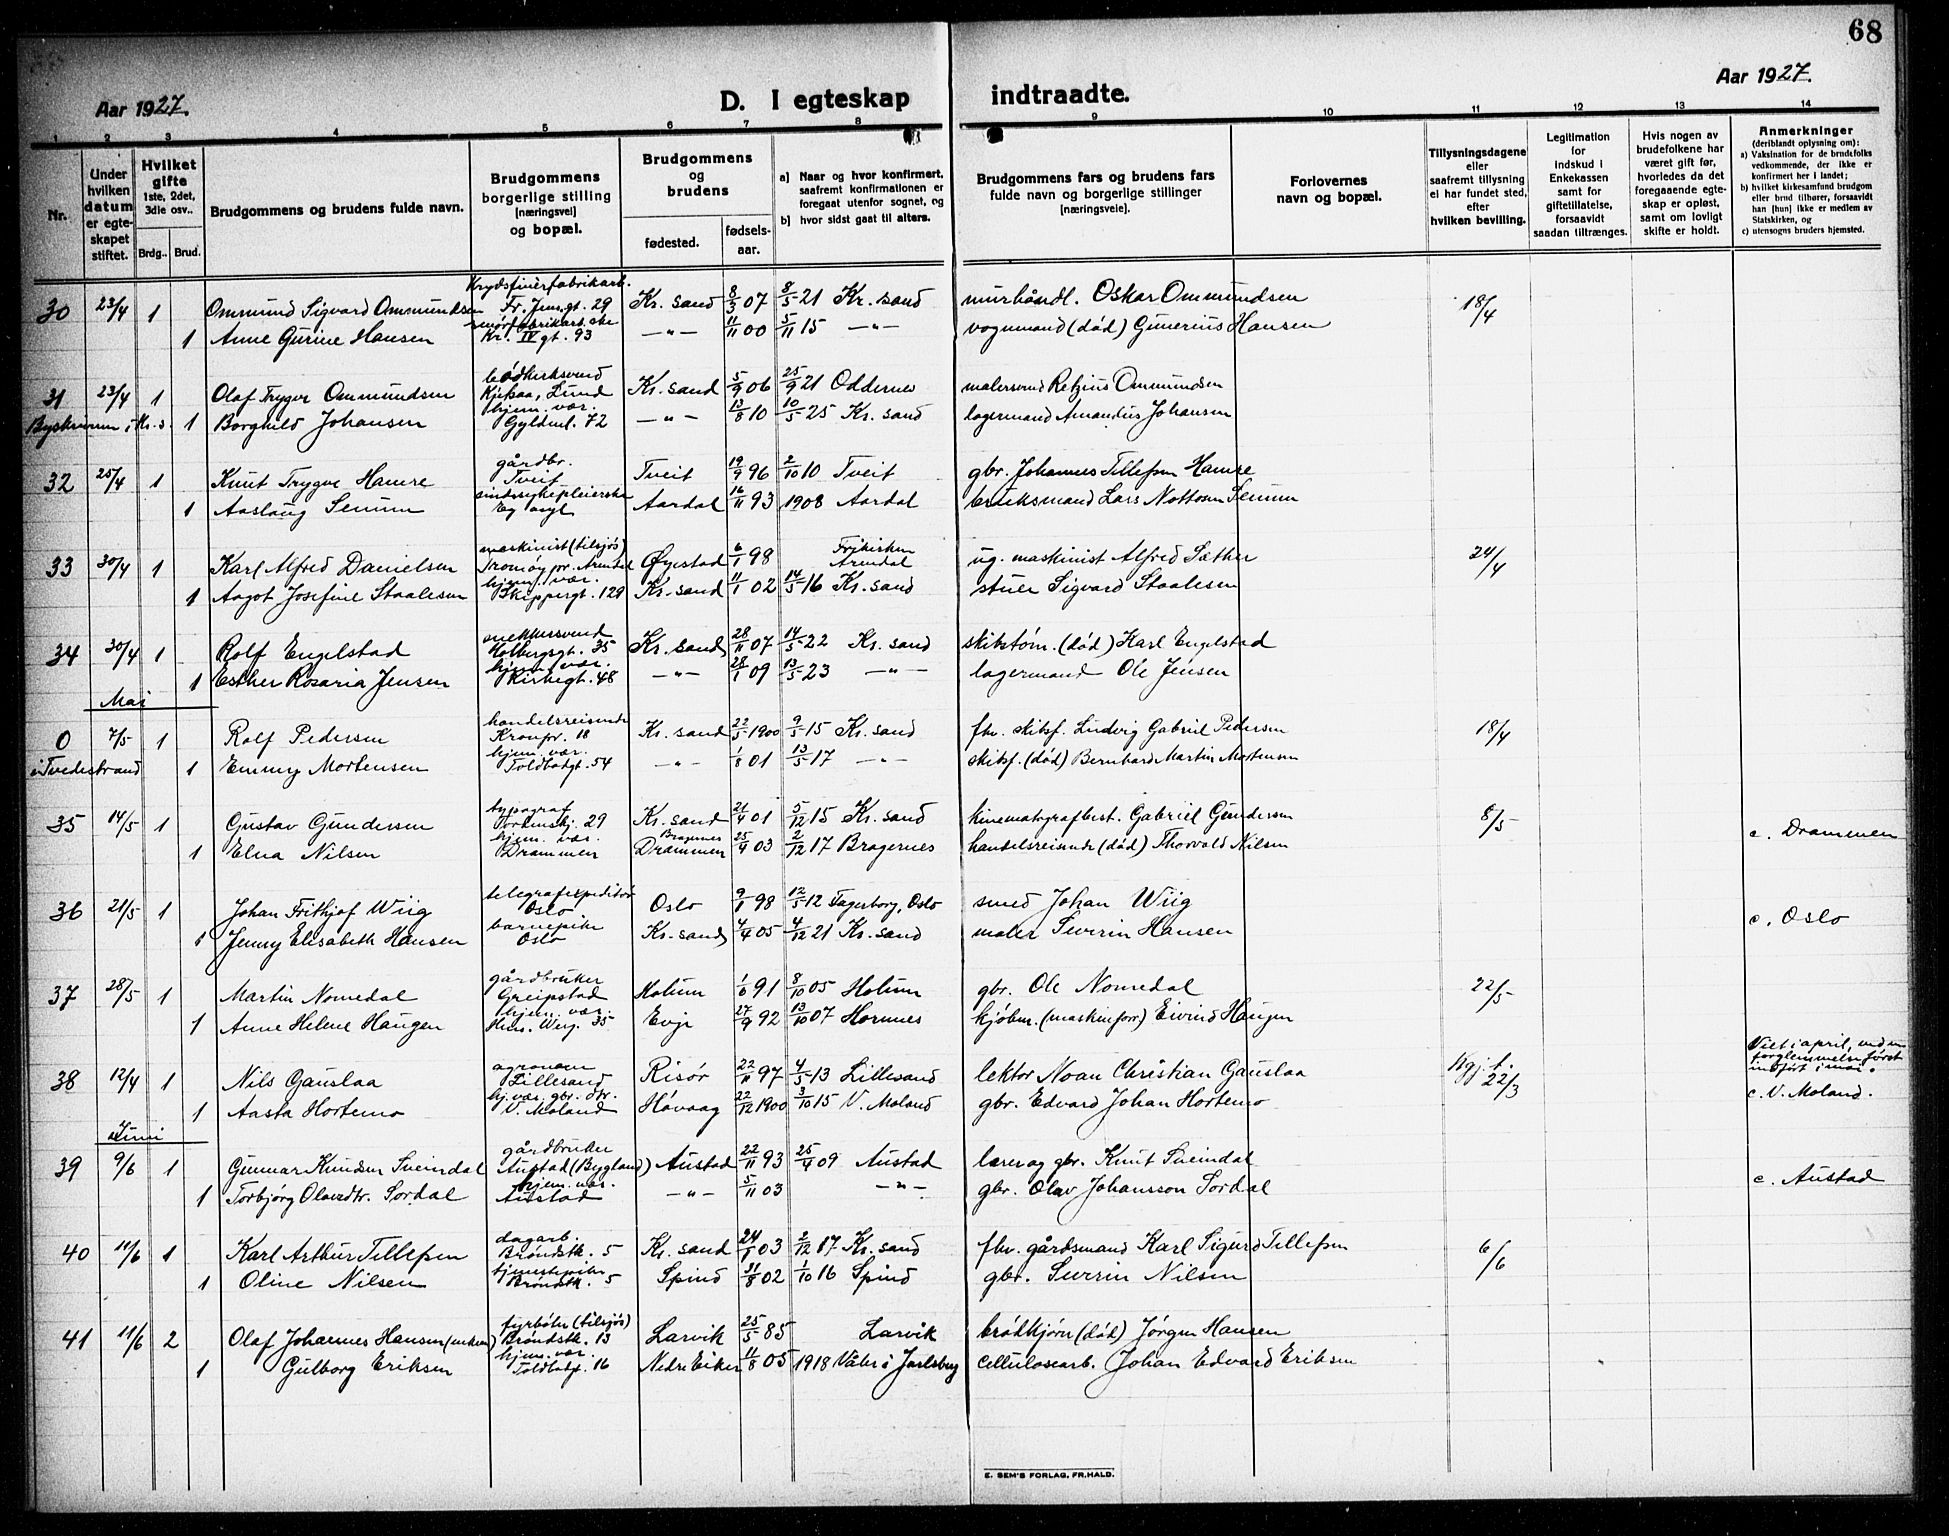 68
Aar 1927.
D. I egteskap indtraadte.
Aar 1927.
1 2 3 4 5 6 7 8 9 10 11 12 13 14
Nr.
Under hvilken datum er egte-skapet stiftet.
Hvilket gifte 1ste, 2det, 3die osv..
Brdg.. Brud.
Brudgommens og brudens fulde navn.
Brudgommens borgerlige stilling [næringsvei] og bopæl.
Brudgommens og brudens
fødested. fødsels-aar.
a) Naar og hvor konfirmert, saafremt konfirmationen er foregaat utenfor sognet, og
b) hvor sidst gaat til alters.
Brudgommens fars og brudens fars fulde navn og borgerlige stillinger [næringsveie].
Forlovernes navn og bopæl.
Tillysningsdagene eller saafremt tillysning ei har fundet sted, efter hvilken bevilling.
Legitimation for indskud i Enkekassen samt for giftetillatelse, forsaavidt saadan tiltrænges.
Hvis nogen av brudefolkene har været gift før, hvorledes da det foregaaende egte-skap er opløst, samt om lovligt skifte er holdt.
Anmerkninger (deriblandt oplysning om):
a) Vaksination for de brudefolks vedkommende, der ikke er konfirmert her i landet;
b) hvilket kirkesamfund brudgom eller brud tilhører, forsaavidt han [hun] ikke er medlem av Statskirken, og
c) utensogns bruders hjemsted.
Krydsfinerfabrikarb.
30 23/4 1 Ommund Sigvard Ommundsen Fr. Jensgt. 29 Kr. sand 8/3 07 8/5 21 Kr. sand murhåndl. Oskar Ommundsen 18/4
1 Anne Gurine Hansen Kr. IV gt. 93 —"— 11/11 00 5/11 15 —"— vognmand (død) Gunerius Hansen
31 23/4 1 Olaf Trygve Ommundsen Lund Kr. sand 5/9 06 25/9 21 Oddernes malersvend Retzius Ommundsen
Byskriveren i Kr. s. 1 Borghild Johansen hjem. vær. Gyldenl. 72 —"— 13/8 10 10/5 25 Kr. sand lagermand Amandus Johansen
32 25/4 1 Knut Trygve Hamre gårdbr. Tveit Tveit 19/9 96 2/10 10 Tveit gbr. Johannes Tellefsen Hamre
1 Aaslaug Senum sindssykepleierske Eg asyl Aardal 16/11 93 1908 Aardal bruksmand Lars Nottosen Senum
33 30/4 1 Karl Alfred Danielsen maskinist (tilsjøs) Tromøy pr. Arendal Øyestad 6/1 98 Frikirken Arendal ug. maskinist Alfred Sæther 24/4
1 Aagot Josefine Staalesen hjem. vær. Skippergt. 129 Kr. sand 11/1 02 14/5 16 Kr. sand stuer Sigvard Staalesen
34 30/4 1 Rolf Engelstad snekkersvend Holbergsgt. 35 Kr. sand 28/11 07 14/5 22 Kr. sand skibstøm. (død) Karl Engelstad
1 Esther Rosaria Jensen hjem. vær. Kirkegt. 48 —"— 28/1 09 13/5 23 —"— lagermand Ole Jensen
Mai
0 7/5 1 Rolf Pedersen handelsreisende Kronpr. 18 Kr. sand 22/5 1900 9/5 15 Kr. sand fhv. skibsf. Ludvig Gabriel Pedersen 18/4
i Tvedestrand 1 Emmy Mortensen hjem. vær. Toldbodgt. 54 —"— 1/8 01 13/5 17 —"— skibsf. (død) Bernhard Martin Mortensen
35 14/5 1 Gustav Gundersen typograf Tordenskj. 29 Kr. sand 21/4 01 5/12 15 Kr. sand kinematografbest. Gabriel Gundersen 8/5
1 Elna Nilsen hjem. vær. Drammen Bragernes Drammen 25/4 03 2/12 17 Bragernes handelsreisende (død) Thorvald Nilsen c. Drammen
36 21/5 1 Johan Frithjof Wiig telegrafexpeditør Oslo Oslo 9/1 98 12/5 12 Fagerborg, Oslo smed Johan Wiig
1 Jenny Elisabeth Hansen barnepike Oslo Kr. sand 4/4 05 4/12 21 Kr. sand maler Severin Hansen c. Oslo
37 28/5 1 Martin Nomedal gårdbruker Greipstad Holum 1/6 91 8/10 05 Holum gbr. Ole Nomedal 22/5
1 Anne Helene Haugen hjem. vær. 35 Evje 27/9 92 13/10 07 Hornnes kjøbm. (maskinforr) Eivind Haugen
38 12/4 1 Nils Gauslaa agronom Lillesand Risør 22/11 97 4/5 13 Lillesand lektor Noan Christian Gauslaa 22/3 Viet i april, ved en forglemmelse først indført i mai.
1 Aasta Hortemo hj. vær. gbr. dtr. V. Moland Høvaag 22/12 1900 3/10 15 V. Moland gbr. Edvard Johan Hortemo c. V. Moland.
Juni
39 9/6 1 Gunnar Knudsen Sveindal gårdbruker Austad (Bygland) Austad 22/11 93 25/4 09 Austad lærer og gbr. Knut Sveindal
1 Torbjørg Olavsdtr. Sordal hjem. vær. Austad —"— 5/11 03 —"— gbr. Olav Johansson Sordal c. Austad
40 11/6 1 Karl Arthur Tellefsen dagarb. Brøndstk. 5 Kr. sand 24/1 03 2/12 17 Kr. sand fhv. gårdsmand Karl Sigurd Tellefsen 6/6
1 Oline Nilsen tjenestepike Brøndstk. 5 Spind 31/8 02 1/10 16 Spind gbr. Severin Nilsen
41 11/6 2 Olaf Johannes Hansen (enkem) fyrbøter (tilsjøs) Brøndstk. 13 Larvik 25/5 85 Larvik brødkjører (død) Jørgen Hansen
1 Gulborg Eriksen hjem. vær. Toldbodgt. 16 Nedre Eiker 11/8 05 1918 Våle i Jarlsberg cellulosearb. Johan Edvard Eriksen
E. SEM'S FORLAG, FR.HALD.